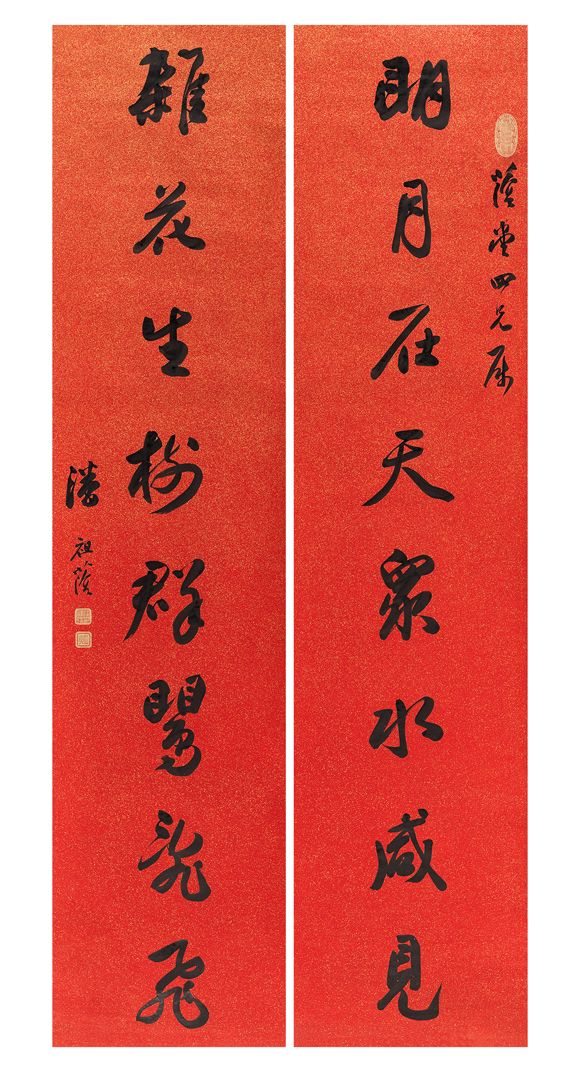 蔭堂四兄属
明月在天眾水咸見
雜花生樹群鸎亂飛
潘祖蔭